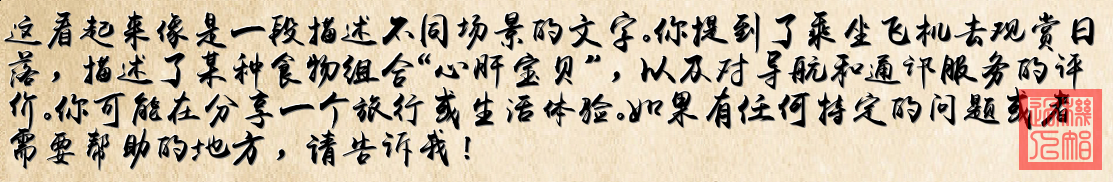 这看起来像是一段描述不同场景的文字。你提到了乘坐飞机去观赏日
落，描述了某种食物组合“心肝宝贝”，以及对导航和通讯服务的评
价。你可能在分享一个旅行或生活体验。如果有任何特定的问题或者
需要帮助的地方，请告诉我！